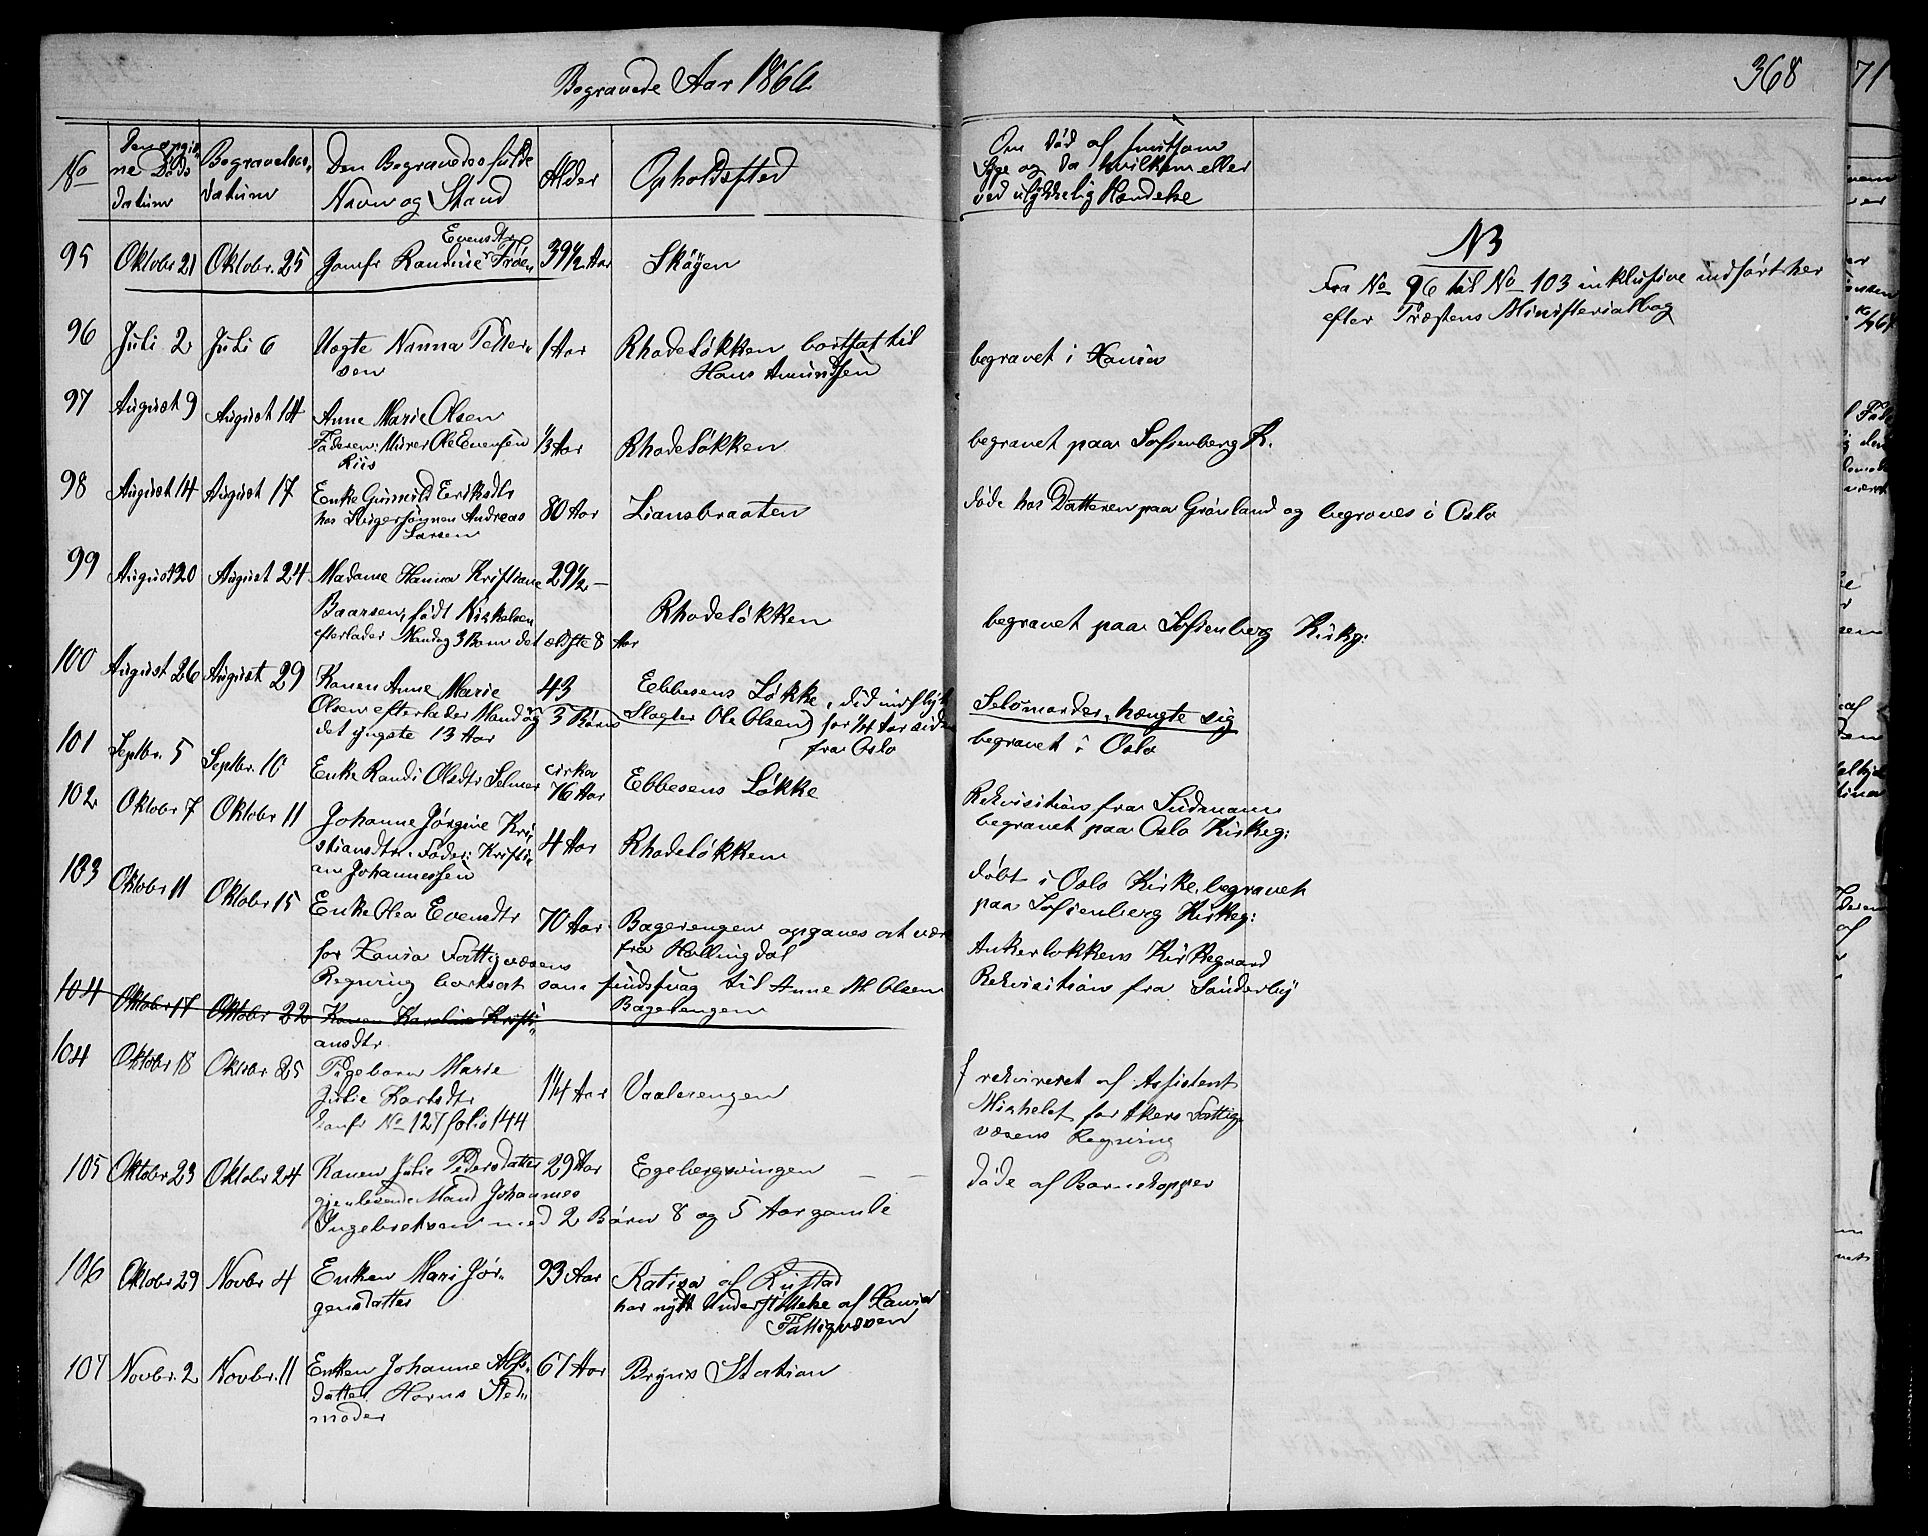 Begravede Aar 1866
368
71
No
Den opgivne Døds datum
Begravelses datum
Den Begravedes fulde Navn og Stand
Alder
Opholdssted
Om død af smitsom
Syge og da hvilken eller
ved ulykkelig Hændelse
95 Oktobr 21 Oktobr. 25 Jomfr Randine Evensdtr Frøen 39½ Aar Skøyen
NB
Fra No 96 til No 103 inklusive indført her
efter Præstens Ministerialbog
96 Juli 2 Juli 6 Uægte Nanna Petter-
sen 1 Aar Rhodeløkken bortsat til
Hans Amundsen
begravet i Xania
97 August 9 August 14 Anne Marie Olsen
Faderen: Murer Ole Evensen
Riis ⅓ Aar Rhodeløkken
begravet paa Sofienberg K.
98 August 14 August 17 Enke Gunnild Eriksdtr
hos Svigersønnen Andreas
Larsen 80 Aar Liansbraaten
døde hos Datteren paa Grønland og begraves i Oslo
99 August 20 August 24 Madame Hanna Kristiane 29½ —
Baarsen, født Nickelsen
efterlader Mand og 3 Børn det ældste 8 Aar
Rhodeløkken
begravet paa Sofienberg Kirkg:
100 August 26 August 29 Konen Anne Marie
Olsen efterlader Mand og 3 Børn
det yngste 13 Aar
43 Ebbesens Løkke, did indflyt
Slagter Ole Olsen) for ¼ Aar siden
fra Oslo
Selvmorder, hængte sig
begravet i Oslo
101 Septbr. 5 Septbr. 10 Enke Randi Olsdtr Selmer cirka
76 Aar Ebbesens Løkke
102 Oktobr 7 Oktobr 11 Johanne Jørgine Kri-
stiansdtr. Fader: Kristi-
an Johannessen 4 Aar Rhodeløkken
Rekvisition fra
begravet paa Oslo Kirkeg:
103 Oktobr 11 Oktobr 15 Enke Olea Evensdtr
70 Aar Bagerengen opgaves at være
fra Hallingdal
for Xania Fattigvæsens
Regning bortsat som sindssvag til Anne M. Olsen
Bagerengen
døbt i Oslo Kirke, begravet
paa Sofienberg Kirkeg:
Ankerløkkens Kirkegaard
Rekvisition fra Sønderby
104 Oktobr 17 Oktobr 22 Konen Karoline Kristi-
ansdtr
104 Oktobr 18 Oktobr 25 Pigebarn Marie
Julie Karlsdtr
Conf No 127 folio 144
1¼ Aar Vaalerengen
rekvireret af Assistent
Michelet for Akers Fattig-
væsens Regning
105 Oktobr 23 Oktobr 24 Konen Julie Pedersdatter 29 Aar Egebergvingen
gjenlevende Mand Johannes
Ingebretsen med 2 Børn 8 og 5 Aar gamle
døde af Barnekopper
106 Oktobr 29 Novbr 4 Enken Mari Jør-
gensdatter
93 Aar Katisa af Rustad
har nydt Understøttelse af Xania
Fattigvæsen
107 Novbr. 2 Novbr. 11 Enken Johanne Alfs-
datter Horns Sted-
moder
67 Aar Bryns Station